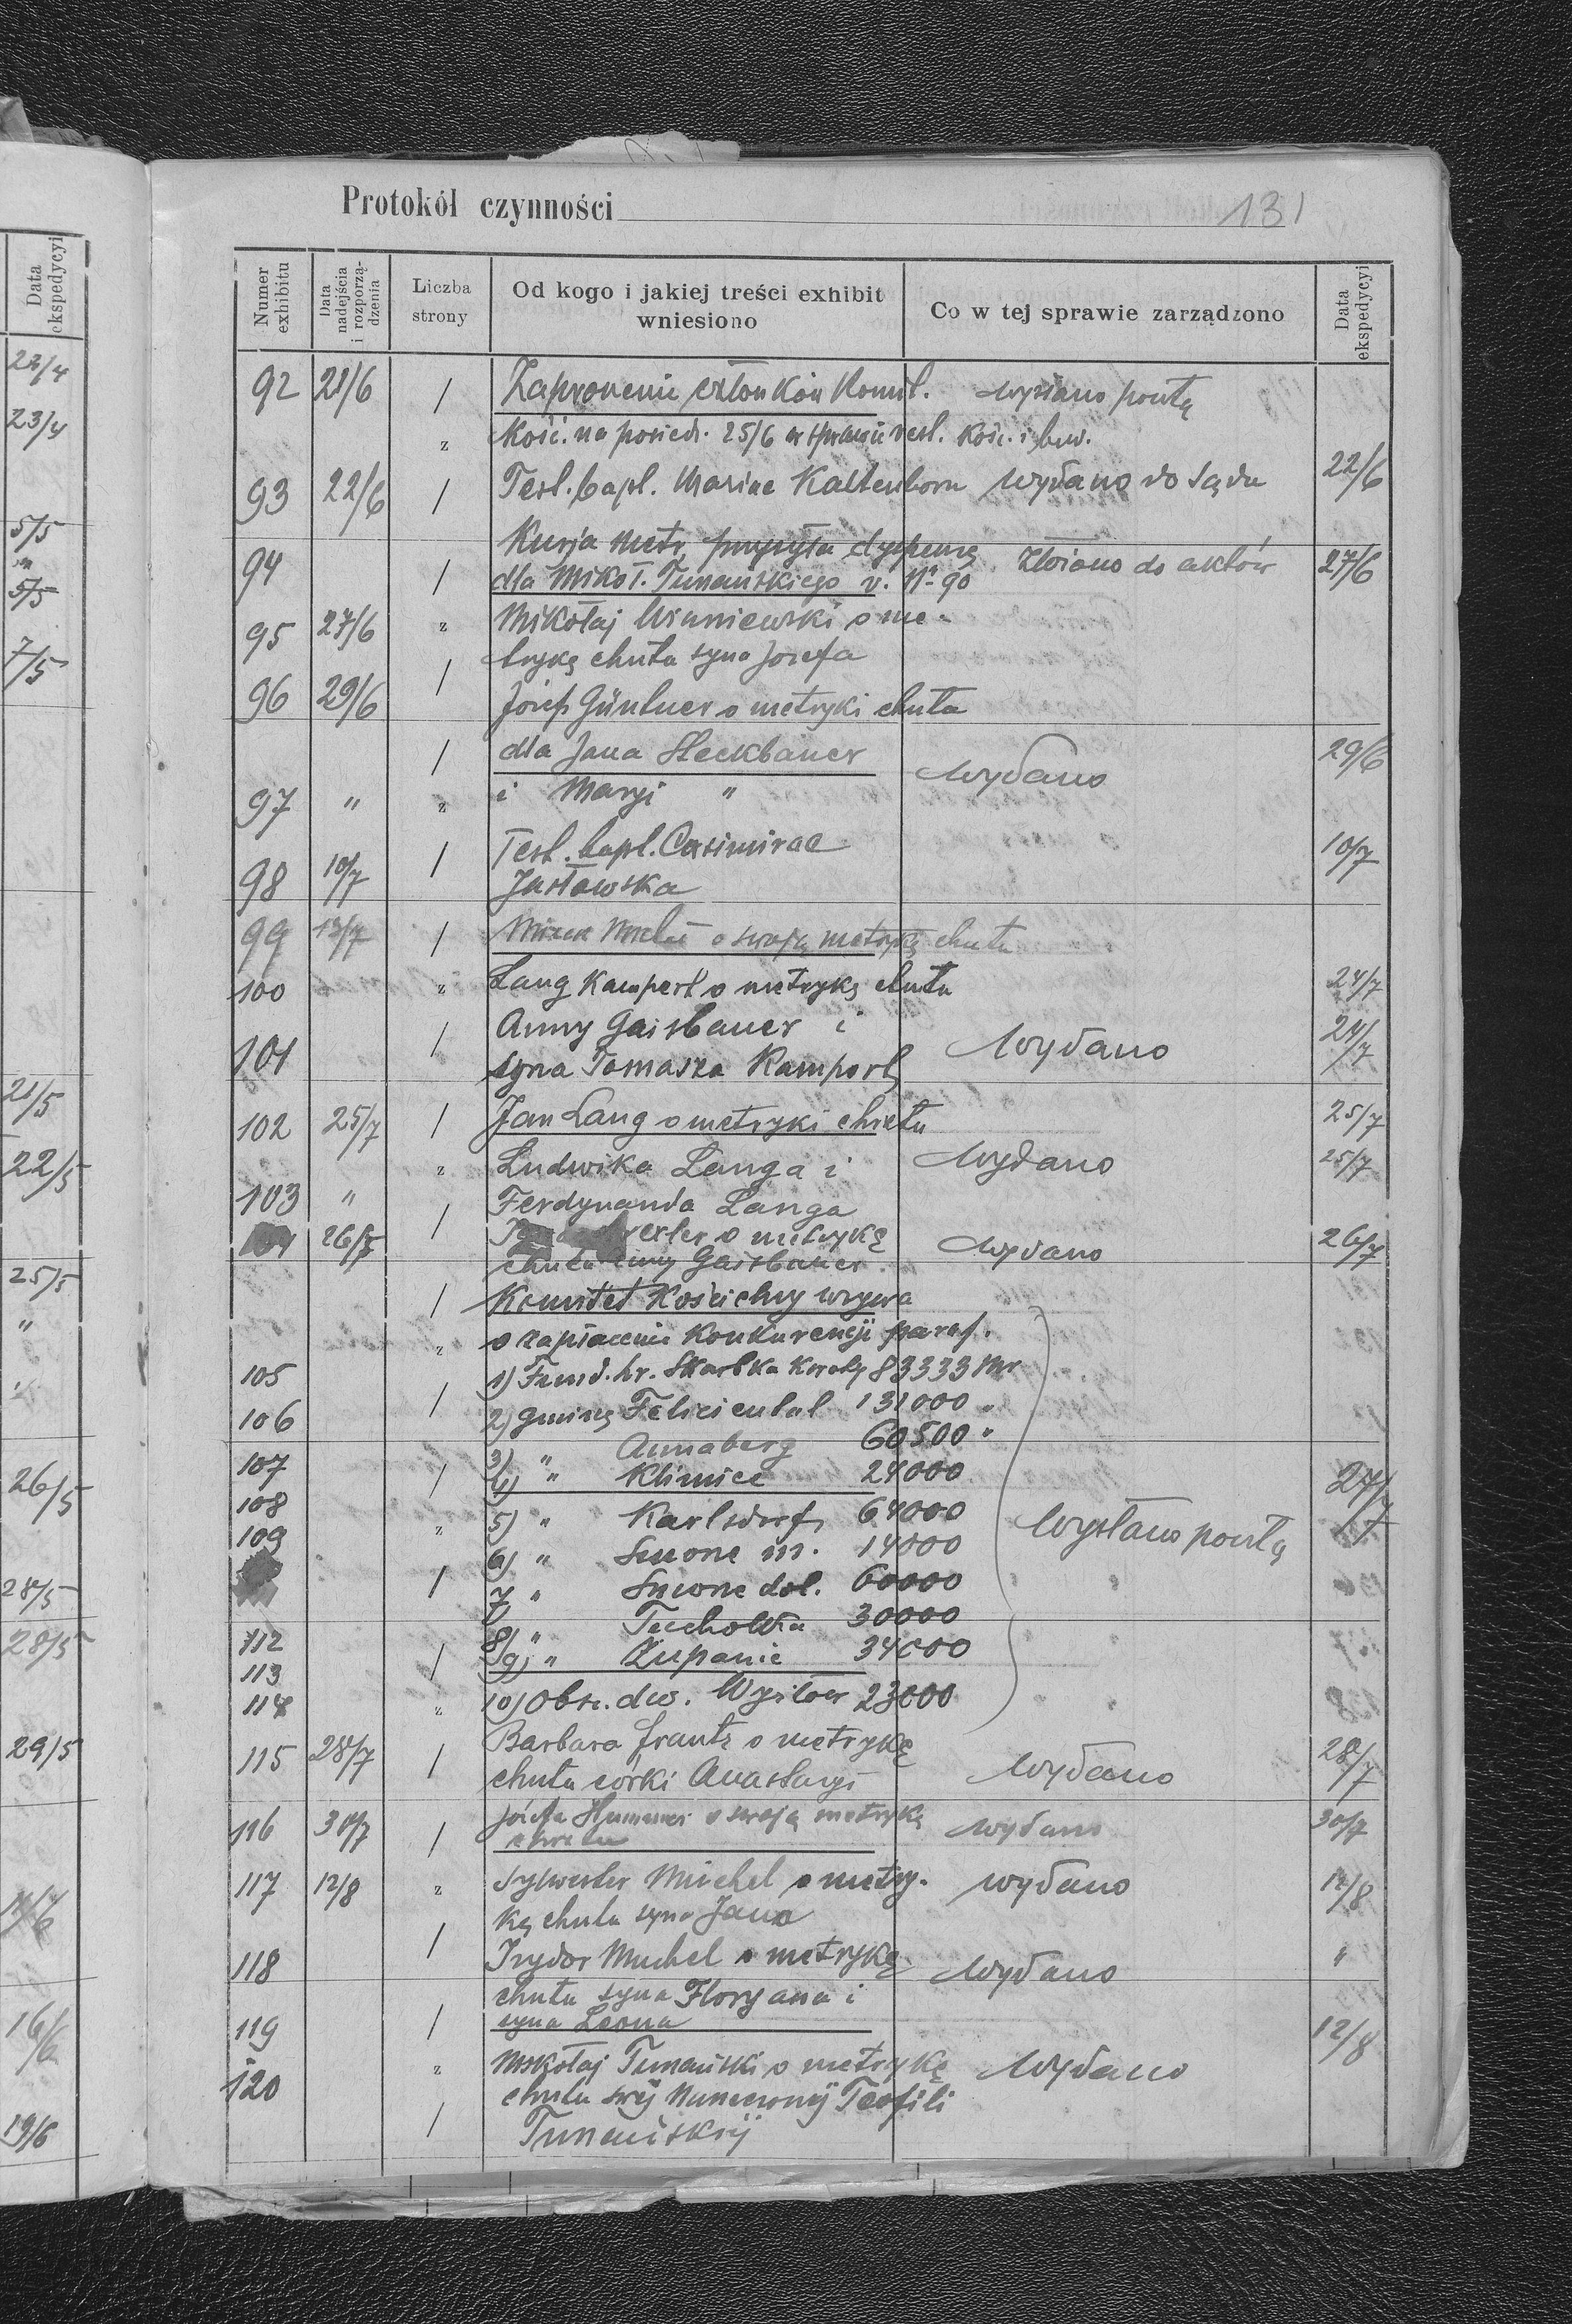 Protokół czynności 131
Data ekspedycyi
Numer exhibitu
Data nadejścia i rozporządzenia
Liczba strony
Od kogo i jakiej treści exhibit wniesiono
Co w tej sprawie zarządzono
Data ekspedycyi
22/4
23/4
5/5
"
5/5
7/5
21/5
22/5
25/5
"
26/5
28/5
28/5
29/5
16/6
19/6
92 21/6 członków Komit. wysłano pocztą
Kość. na posied. 25/6 w sprawie rest. kość. i bud.
93 22/6 Test. bapt. Mariae Kaltenborn wydano do Sądu 22/6
Kurja metr. przysyła dyspensę
94 dla Mikoł. Tumańskiego v. Nr 90 złożono do aktów 27/6
95 27/6 Mikołaj Winniewski o me-
trykę chrztu syna Józefa
96 29/6 Józef Güntner o metryki chrztu
dla Jana Steckbauer wydano 29/6
97 " i Maryi "
Test. bapt. Casimirae 10/7
98 10/7 Justowska
99 13/7 o swoją metrykę chrztu
100 Lang Kampert o metrykę chrztu 24/7
101 Anny Gaisbauer i wydano 24/7
syna Tomasza Kampert
102 25/7 Jan Lang o metryki chrztu 25/7
Ludwika Langa i wydano 25/7
103 " Ferdynanda Langa
104 26/7 o metrykę wydano 26/7
chrztu Anny Gaisbauer
Komitet Kościelny wzywa
o zapłacenie konkurencji paraf.
105 1) Fund. hr. Skarbka kwotę 83333 Mr
106 2) gminę Felicienthal 131000 "
107 3) " Annaberg 60500 "
108 4) " Klimiec 24000 27/7
109 5) " Karlsdorf 64000 wysłano pocztą
6) " Smorze m. 14000
7) " Smorze dol. 60000
112 8) " Tucholka 30000
113 9) " Żupanie 34000
114 10) Obsz. dw. Wyżłów 23000
115 28/7 Barbara Frantz o metrykę wydano 28/7
chrztu córki Anastazji
116 30/7 o swoją metrykę wydano 30/7
chrztu
117 12/8 Sylwester Michel o metry- wydano 12/8
kę chrztu syna Jana
118 Izydor Michel o metrykę wydano "
chrztu syna Floryana i
119 syna Leona 12/8
120 Mikołaj Tumański o metrykę wydano
chrztu swej Narzeczonej Teofili
Tumańskiej